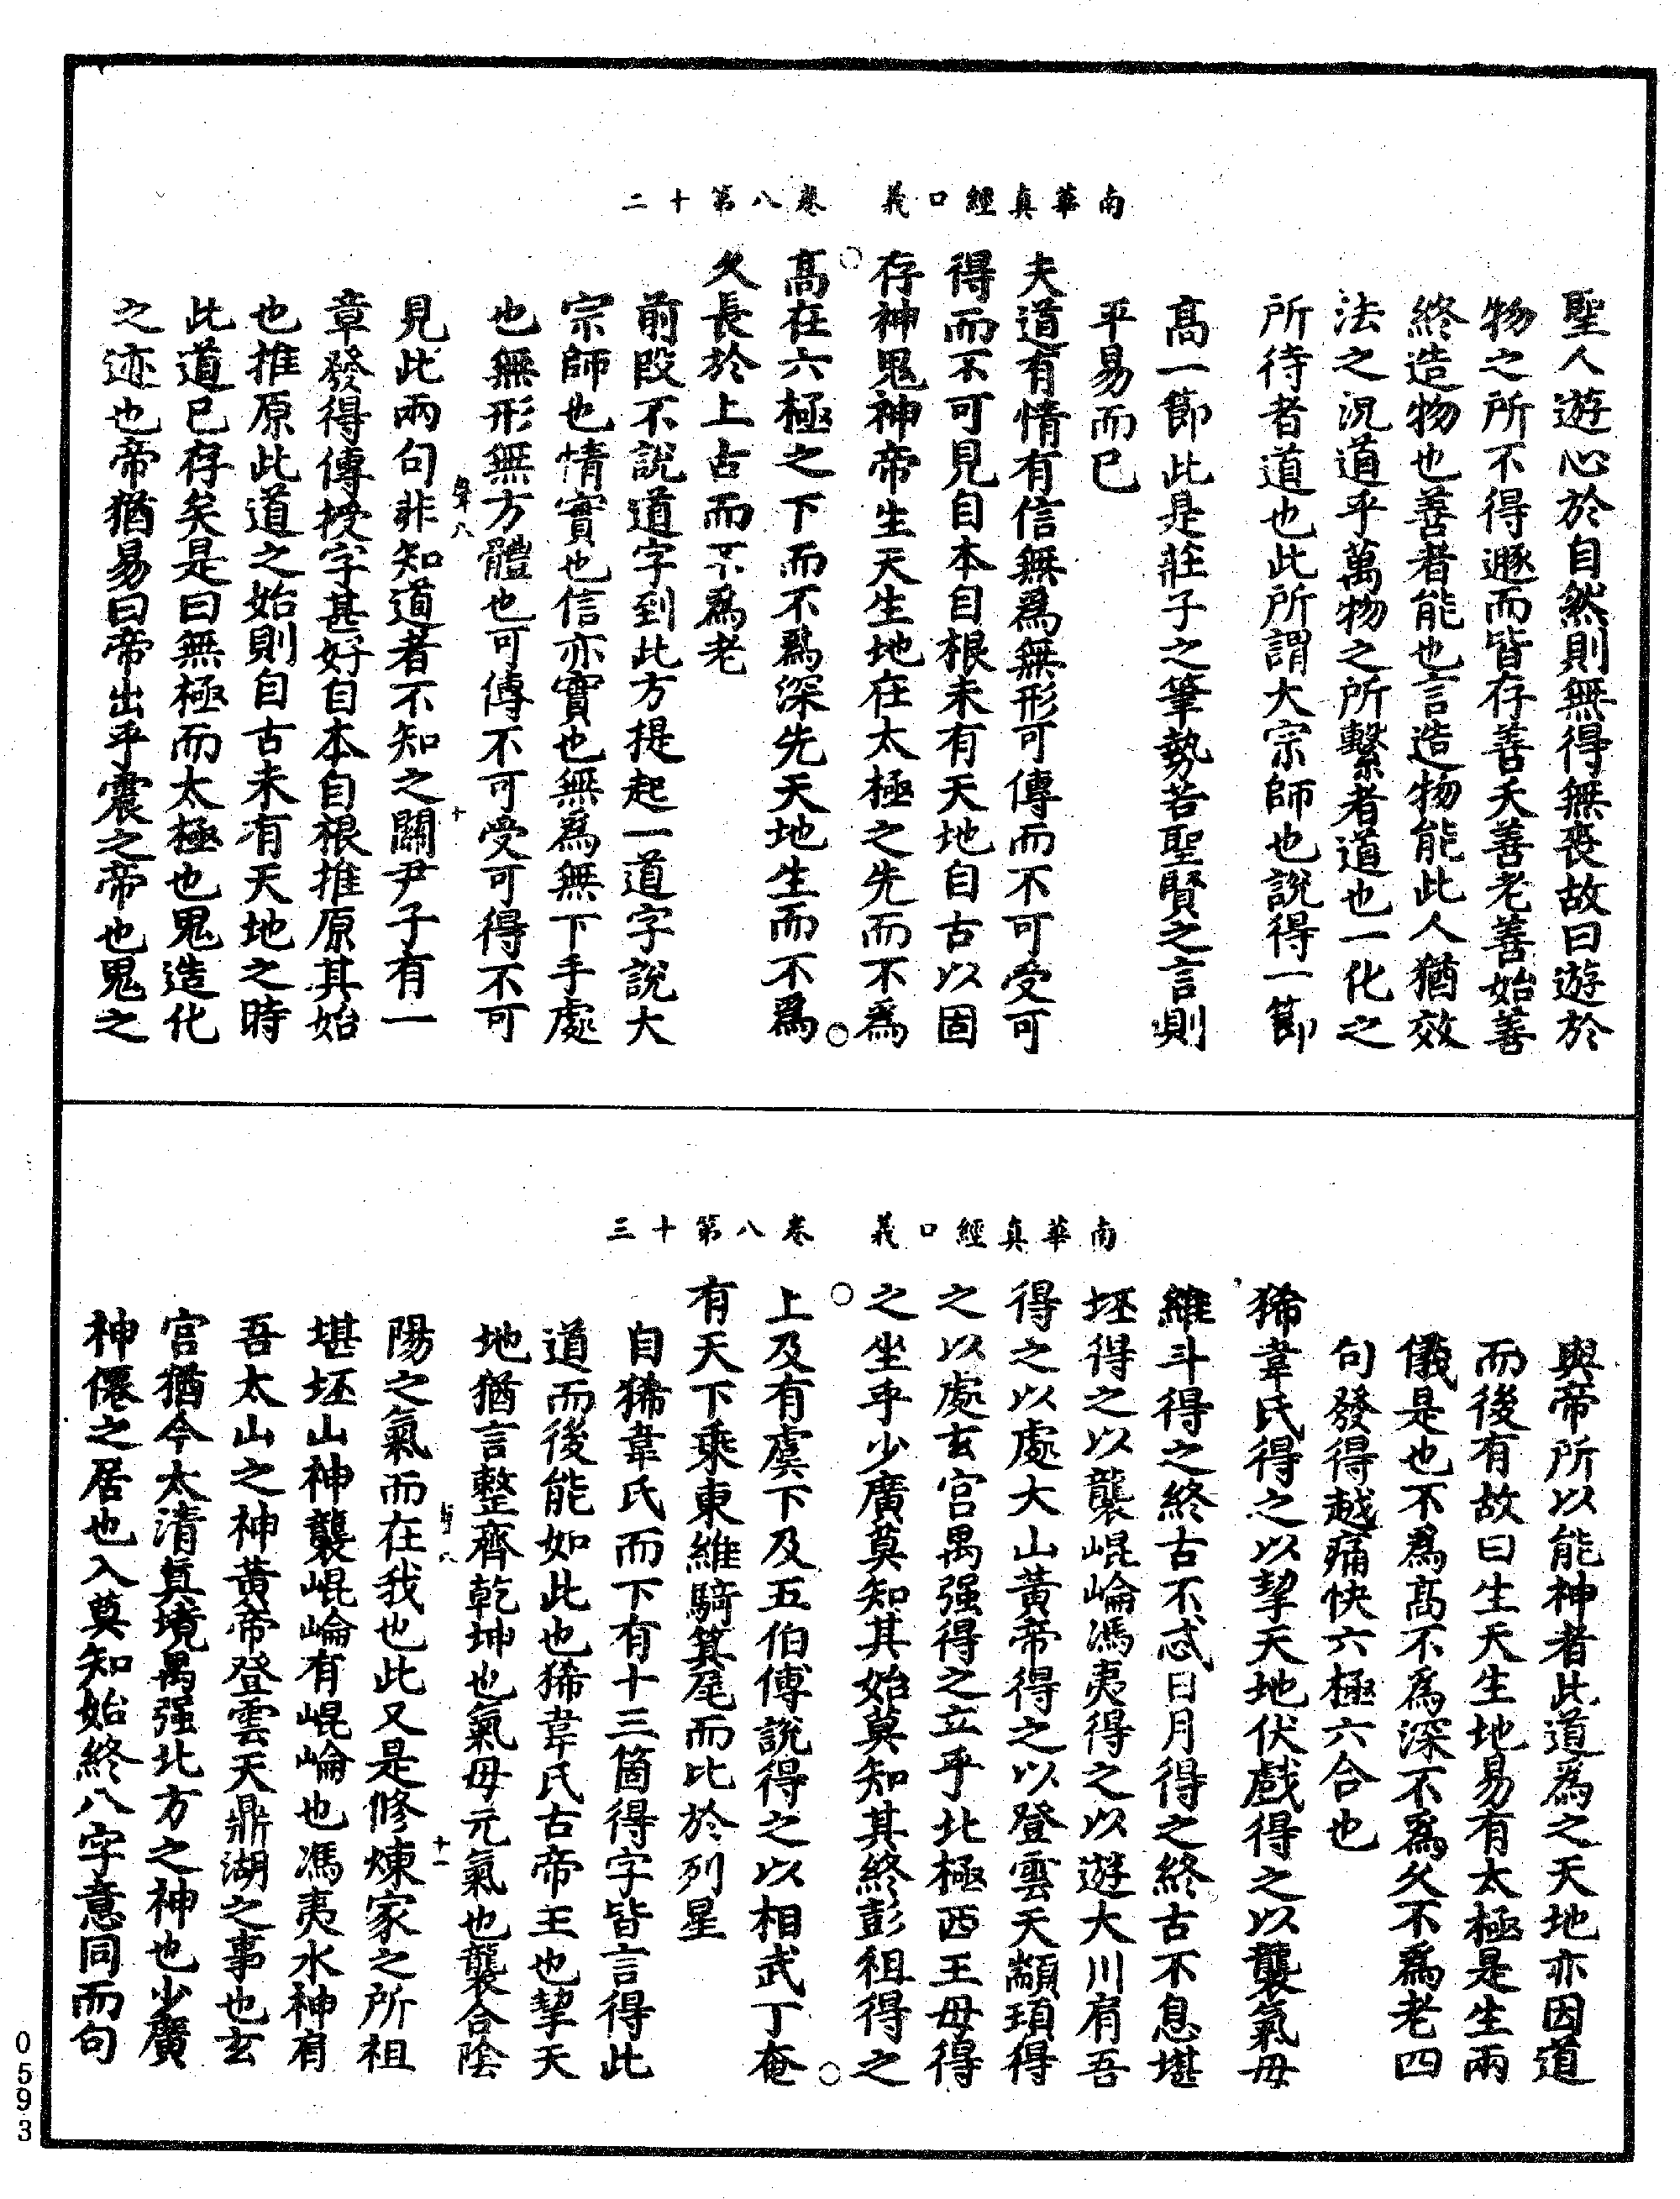 南華真經口義　卷八第十二
聖人遊心於自然則無得無喪故曰遊於
物之所不得遯而皆存善夭善老善始善
終造物也善者能也言造物能此人猶效
法之況道乎萬物之所繫者道也一化之
所待者道也此所謂大宗師也說得一節
高一節此是莊子之筆勢若聖賢之言則
平易而已
夫道有情有信無爲無形可傳而不可受可
得而不可見自本自根未有天地自古以固
存神鬼神帝生天生地在太極之先而不爲
高在六極之下而不爲深先天地生而不爲
久長於上古而不爲老
前段不說道字到此方提起一道字說大
宗師也情實也信亦實也無爲無下手處
也無形無方體也可傳不可受可得不可
見此兩句非知道者不知之關尹子有一
章發得傳授字甚好自本自根推原其始
也推原此道之始則自古未有天地之時
此道已存矣是曰無極而太極也鬼造化
之迹也帝猶易曰帝出乎震之帝也鬼之
南華真經口義　卷八第十三
與帝所以能神者此道爲之天地亦因道
而後有故曰生天生地易有太極是生兩
儀是也不爲高不爲深不爲久不爲老四
句發得越痛快六極六合也
狶韋氏得之以挈天地伏戲得之以襲氣母
維斗得之終古不忒日月得之終古不息堪
坯得之以襲崐崘馮夷得之以遊大川肩吾
得之以處大山黃帝得之以登雲天顓頊得
之以處玄宮禺强得之立乎北極西王母得
之坐乎少廣莫知其始莫知其終彭祖得之
上及有虞下及五伯傅說得之以相武丁奄
有天下乘東維騎箕尾而比於列星
自狶韋氏而下有十三箇得字皆言得此
道而後能如此也狶韋氏古帝王也挈天
地猶言整齊乾坤也氣母元氣也襲合陰
陽之氣而在我也此又是修煉家之所祖
堪坯山神襲崐崘有崐崘也馮夷水神肩
吾太山之神黃帝登雲天鼎湖之事也玄
宮猶今太清真境禺强北方之神也少廣
神僊之居也入莫知始終八字意同而句
0593